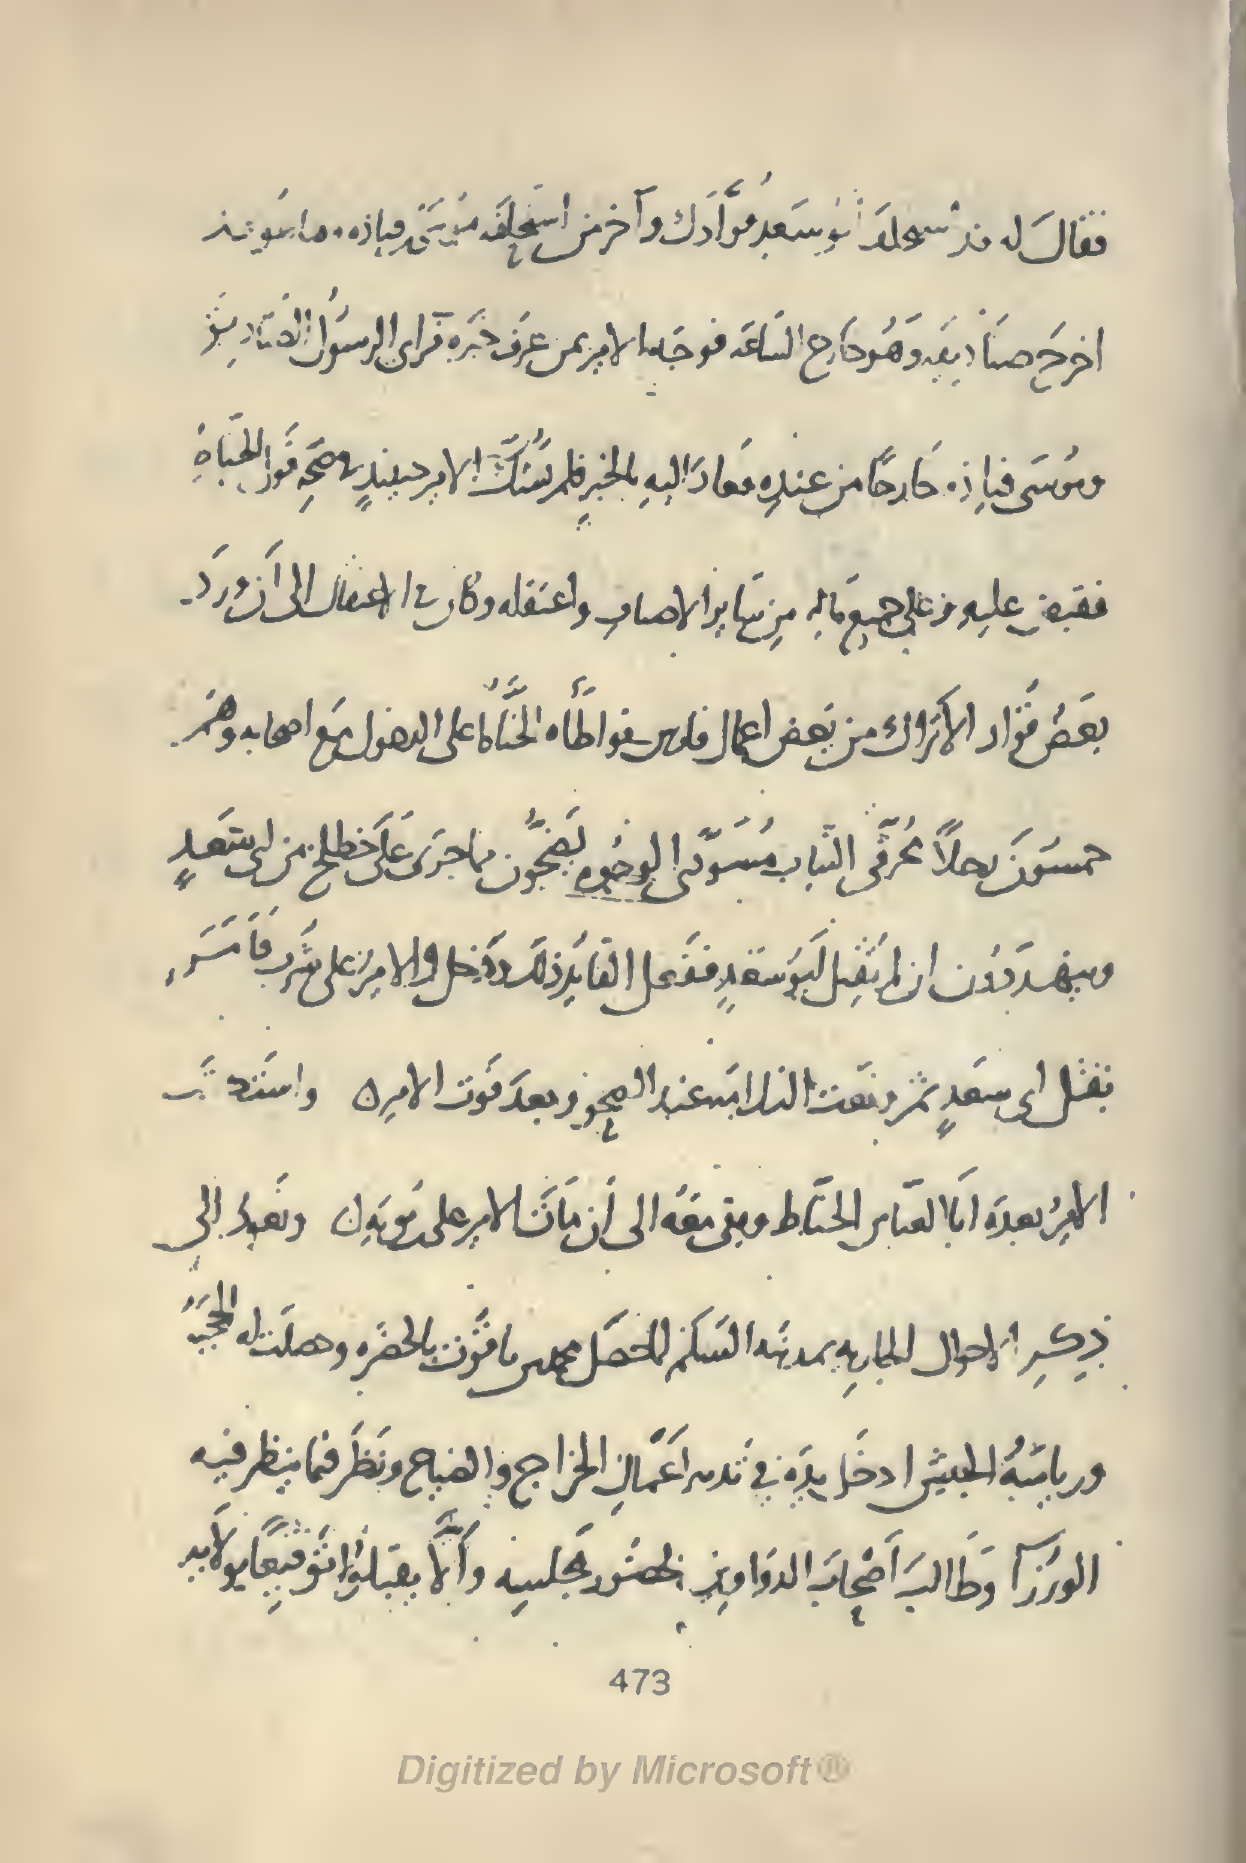 فقال له قد استحلف أبو سعد قوادك وآخر من استحلفه موسى فياذه
اخرج صناديقه وهو خارج الساعة فوجه الامير بمن عرف خبره فراى الرسول الصناديق
وموسى فياذه خارجا من عنده فعاد اليه بالخبر فلم يشك الامير حينئذ في صحة قول الخياط
فقبض عليه وعلى جميع ماله من ساير الاصناف واعتقله وكان في الاعتقال الى ان ورد
بعض قواد الاتراك من بعض اعمال فارس فواطأه الخياط على الدخول مع اصحابه وهم
خمسون رجلا مخرقى الثياب مسودى الوجوه يضجون مما جرى على خطلخ من ابى سعد
ويتهددون ان لم يقتل ابو سعد ففعل القايد ذلك ودخل والامير على شرب فامر
بقتل ابى سعد ثم وقعت الندامة عند الصحو وبعد فوت الامر ن واستكتب
الامير بعده ابا العباس الخياط وبقى معه الى ان مات الامير على بن بويه ن ونعود الى
ذكر الاحوال الجارية بمدينة السلم لما حصل محمد بن ياقوت بالحضرة وحصلت له الحجبة
ورياسة الجيش ادخل يده في تدبير اعمال الخراج والضياع ونظر فيما ينظر فيه
الوزرآ وطالب اصحاب الدواوين بحضور مجلسه وألا يقبلوا توقيعا بولاية
473
Digitized by Microsoft®